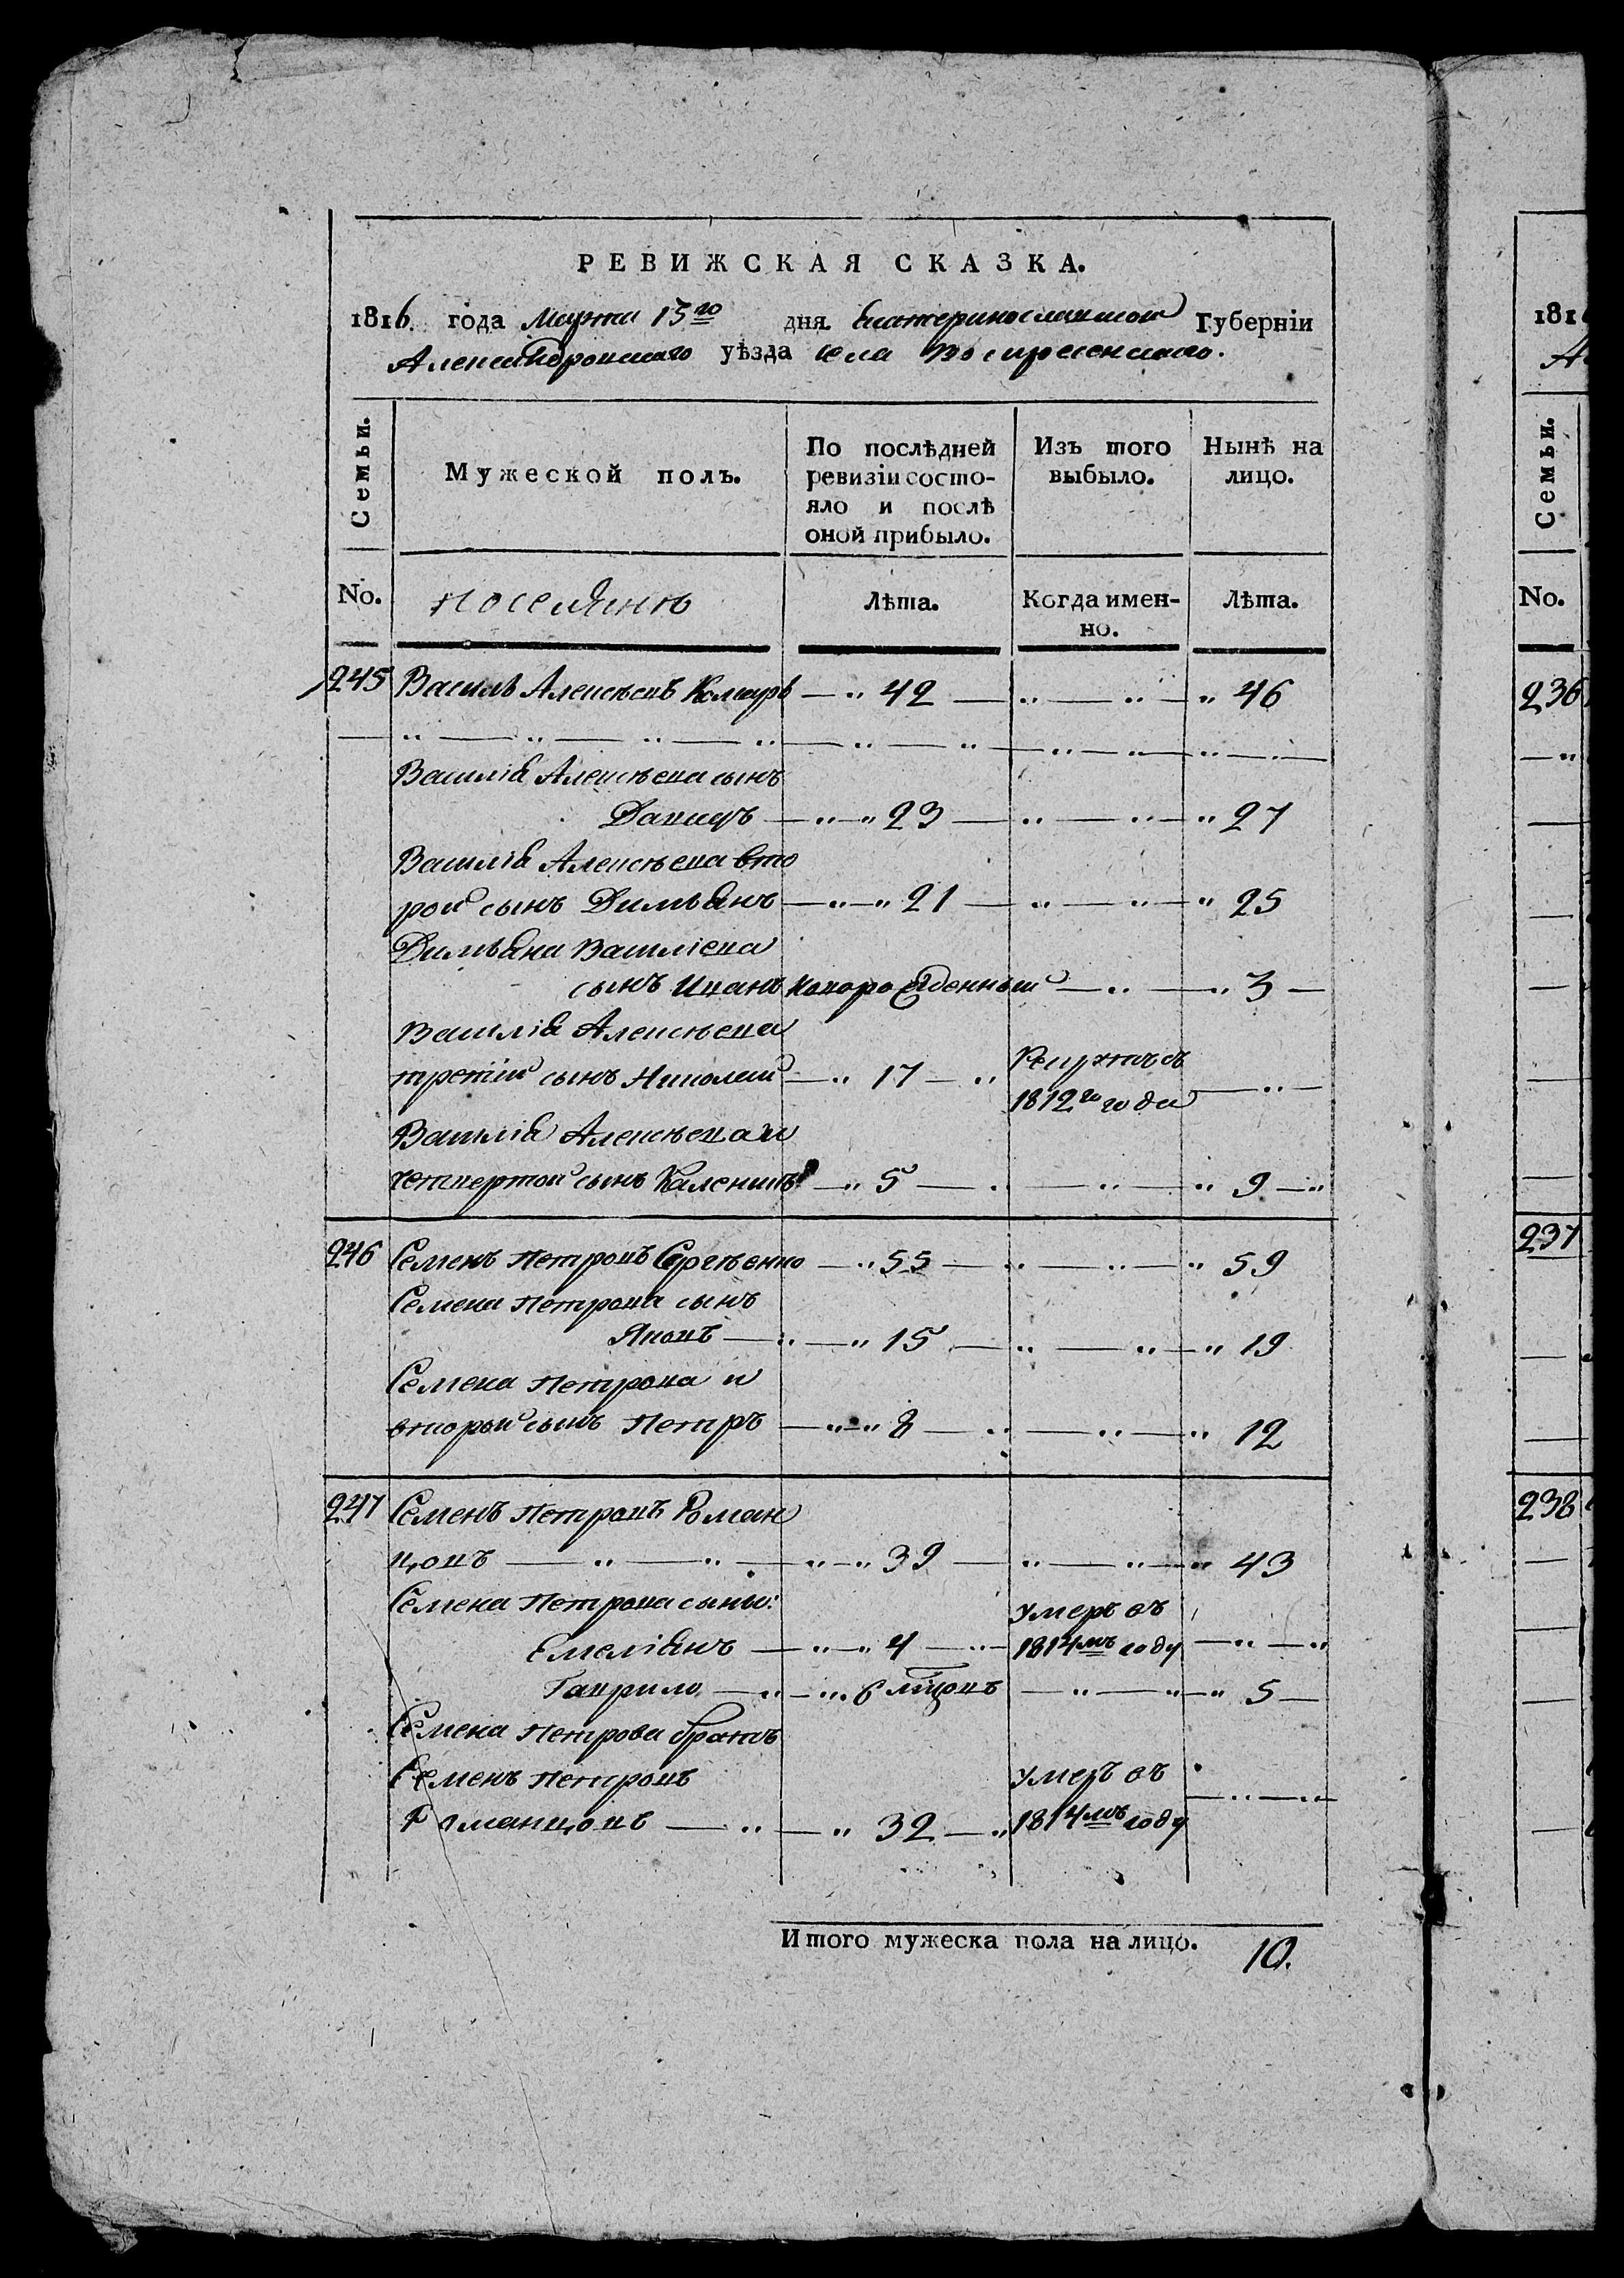 РЕВИЖСКАЯ СКАЗКА.
1816. года Марта 15го дня Екатеринославской Губерніи
Александровскаго уѣзда села Воскресенскаго.
Семьи.
Мужеской полъ.
По послѣдней
ревизіи состо-
яло и послѣ
оной прибыло.
Изъ того
выбыло.
Нынѣ на
лицо.
No.
поселянъ
Лѣта.
Когда имен-
но.
Лѣта.
245 Василь Алексѣевъ 42 46
Василія Алексѣева сынъ
Давидъ 23 27
Василія Алексѣева вто
рой сынъ Димьянъ 21 25
Димьяна Василіева
сынъ Иванъ новорожденный 3
Василія Алексѣева
третій сынъ Николай 17 Рекрутъ съ
1812го года
Василія Алексѣева и
четвертой сынъ Каленикъ 5 9
246 Семенъ Петровъ Сергѣенко 55 59
Семена Петрова сынъ
Яковъ 15 19
Семена Петрова и
второй сынъ Петръ 8 12
247 Семенъ Петровъ Роман
цовъ 39 43
Семена Петрова сыны:
Емеліянъ 4 умеръ въ
1814мъ году
Гаврило 6 мцовъ 5
Семена Петрова братъ
Семенъ Петровъ
Романцовъ 32 умеръ въ
1814мъ году
Итого мужеска пола на лицо. 10.
181
А
Семьи.
No.
236
237
238